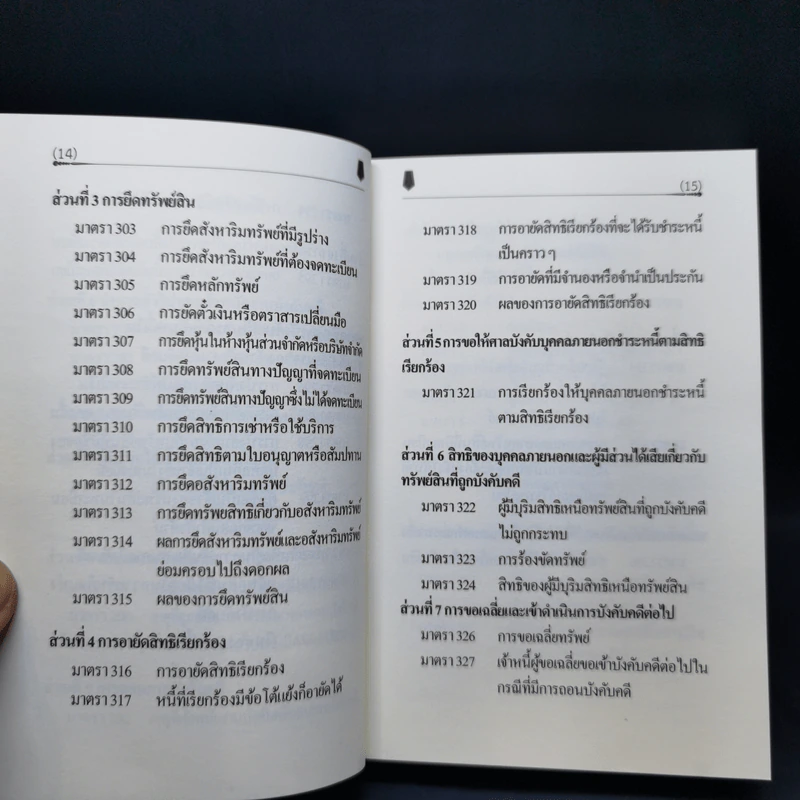 (14)
ส่วนที่ 3 การยึดทรัพย์สิน
มาตรา 303 การยึดสังหาริมทรัพย์ที่มีรูปร่าง
มาตรา 304 การยึดสังหาริมทรัพย์ที่ต้องจดทะเบียน
มาตรา 305 การยึดหลักทรัพย์
มาตรา 306 การยัดตั๋วเงินหรือตราสารเปลี่ยนมือ
มาตรา 307 การยึดหุ้นในห้างหุ้นส่วนจำกัดหรือบริษัทจำกัด
มาตรา 308 การยึดทรัพย์สินทางปัญญาที่จดทะเบียน
มาตรา 309 การยึดทรัพย์สินทางปัญญาซึ่งไม่ได้จดทะเบียน
มาตรา 310 การยึดสิทธิการเช่าหรือใช้บริการ
มาตรา 311 การยึดสิทธิตามใบอนุญาตหรือสัมปทาน
มาตรา 312 การยึดอสังหาริมทรัพย์
มาตรา 313 การยึดทรัพยสิทธิเกี่ยวกับอสังหาริมทรัพย์
มาตรา 314 ผลการยึดสังหาริมทรัพย์และอสังหาริมทรัพย์
ย่อมครอบไปถึงดอกผล
มาตรา 315 ผลของการยึดทรัพย์สิน
ส่วนที่ 4 การอายัดสิทธิเรียกร้อง
มาตรา 316 การอายัดสิทธิเรียกร้อง
มาตรา 317 หนี้ที่เรียกร้องมีข้อโต้แย้งก็อายัดได้
(15)
มาตรา 318 การอายัดสิทธิเรียกร้องที่จะได้รับชำระหนี้
เป็นคราว ๆ
มาตรา 319 การอายัดที่มีจำนองหรือจำนำเป็นประกัน
มาตรา 320 ผลของการอายัดสิทธิเรียกร้อง
ส่วนที่ 5 การขอให้ศาลบังคับบุคคลภายนอกชำระหนี้ตามสิทธิ
เรียกร้อง
มาตรา 321 การเรียกร้องให้บุคคลภายนอกชำระหนี้
ตามสิทธิเรียกร้อง
ส่วนที่ 6 สิทธิของบุคคลภายนอกและผู้มีส่วนได้เสียเกี่ยวกับ
ทรัพย์สินที่ถูกบังคับคดี
มาตรา 322 ผู้มีบุริมสิทธิเหนือทรัพย์สินที่ถูกบังคับคดี
ไม่ถูกกระทบ
มาตรา 323 การร้องขัดทรัพย์
มาตรา 324 สิทธิของผู้มีบุริมสิทธิเหนือทรัพย์สิน
ส่วนที่ 7 การขอเฉลี่ยและเข้าดำเนินการบังคับคดีต่อไป
มาตรา 326 การขอเฉลี่ยทรัพย์
มาตรา 327 เจ้าหนี้ผู้ขอเฉลี่ยขอเข้าบังคับคดีต่อไปใน
กรณีที่มีการถอนบังคับคดี